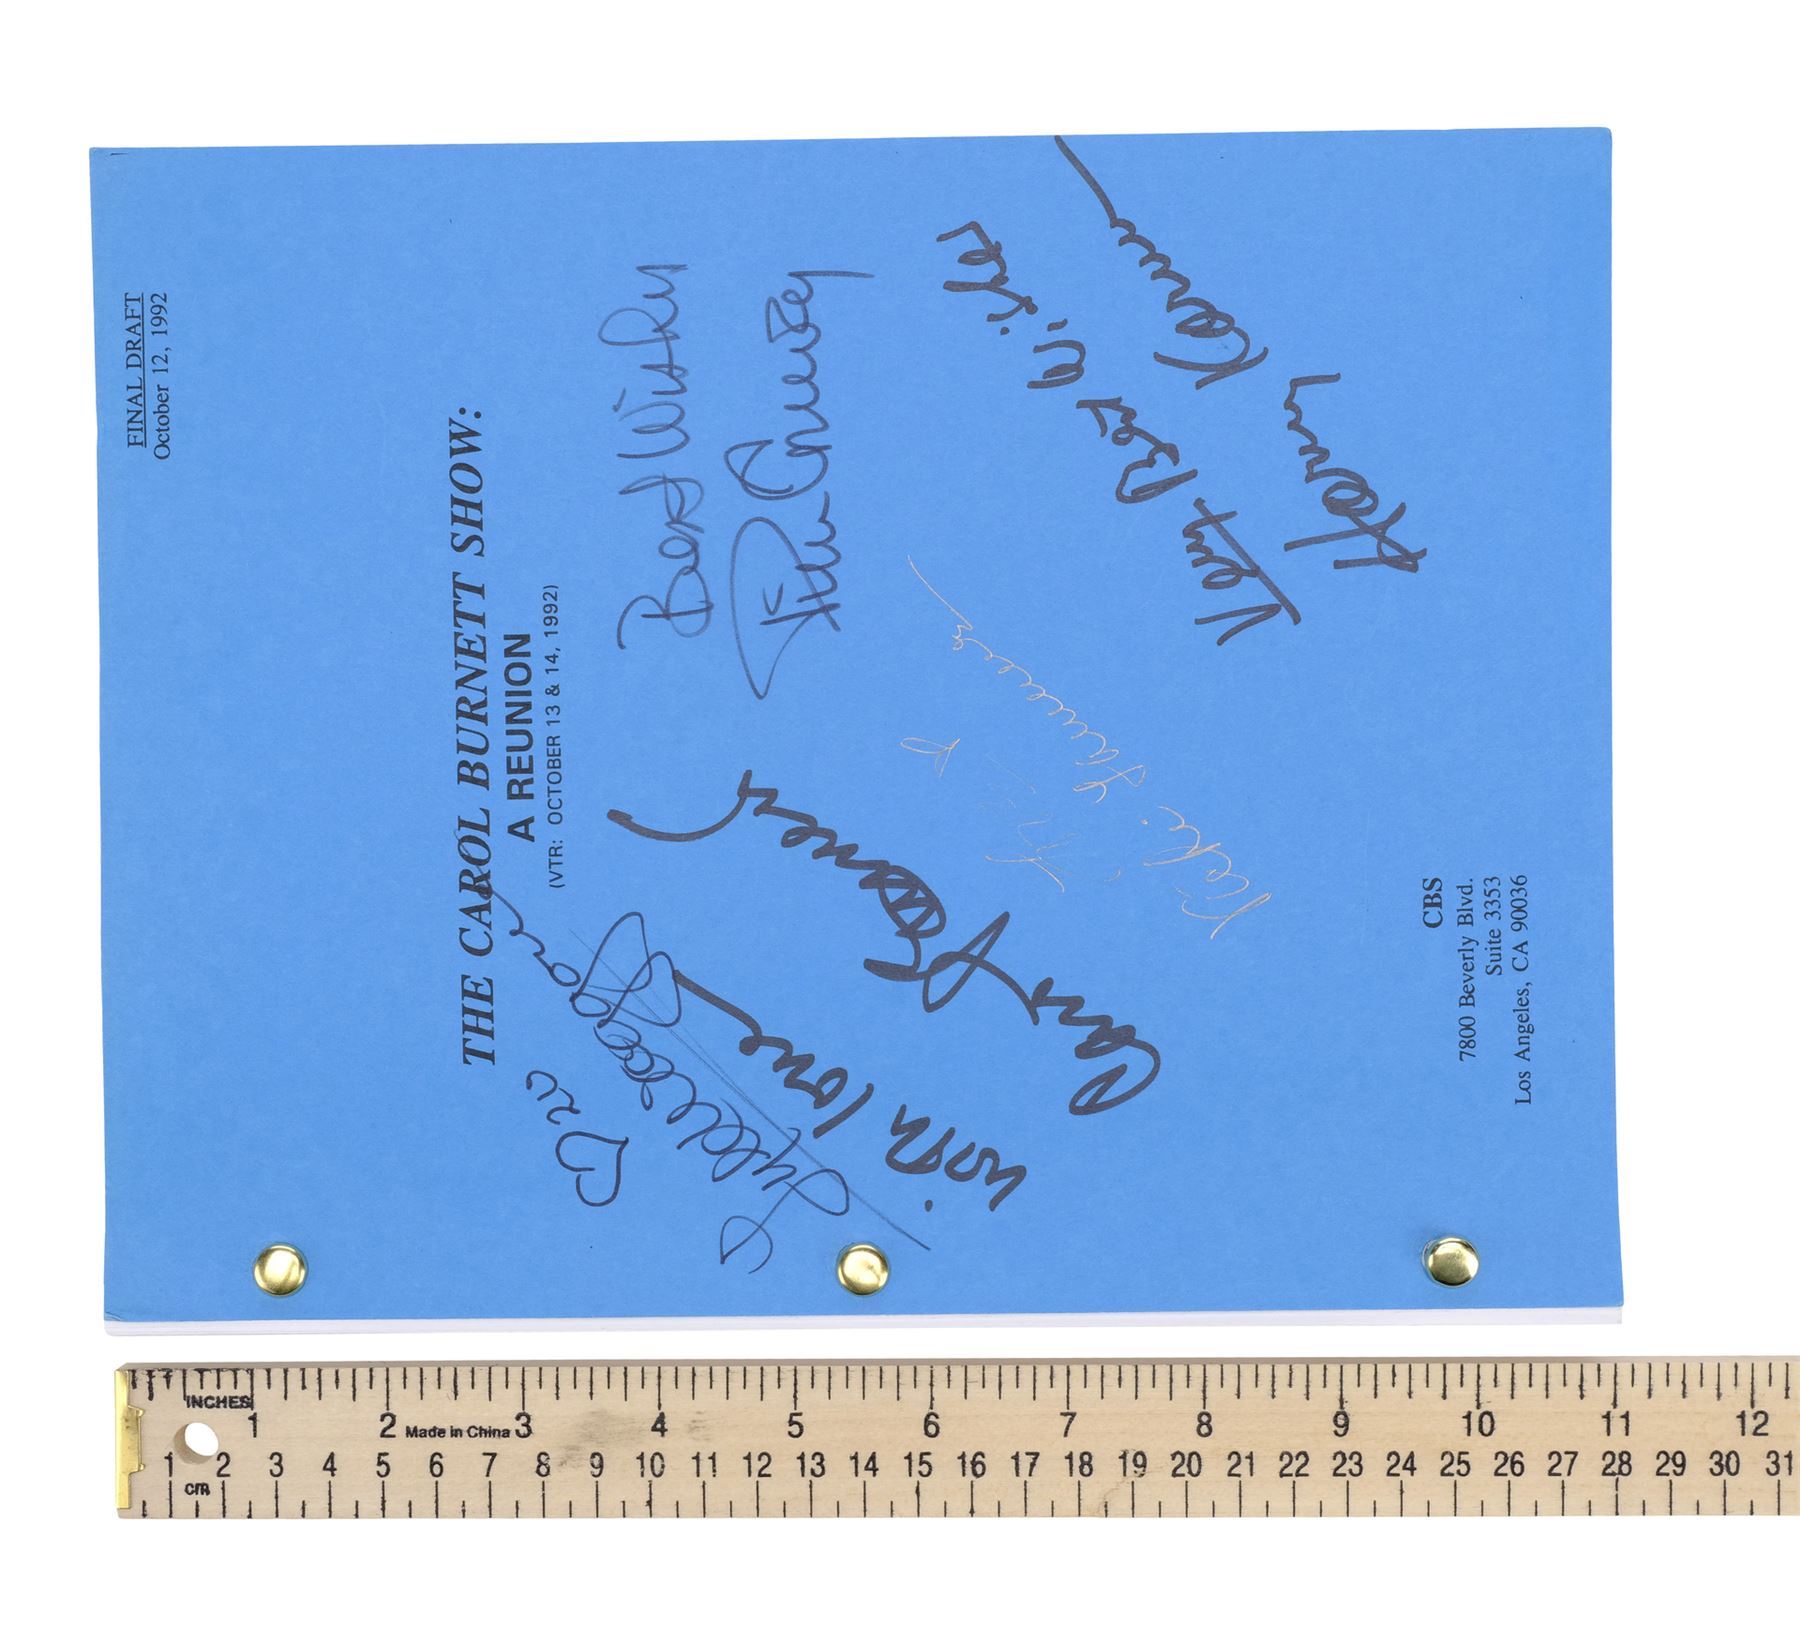 FINAL DRAFT
October 12, 1992
THE CAROL BURNETT SHOW:
A REUNION
(VTR: OCTOBER 13 & 14, 1992)
Best Wishes
Tim Conway
Lyle Waggoner
with love
Carol Burnett
Vicki Lawrence
Very Best Wishes
Harvey Korman
CBS
7800 Beverly Blvd.
Suite 3353
Los Angeles, CA 90036
INCHES
1 2 Made in China 3 4 5 6 7 8 9 10 11 12
1 2 3 4 5 6 7 8 9 10 11 12 13 14 15 16 17 18 19 20 21 22 23 24 25 26 27 28 29 30 31
cm